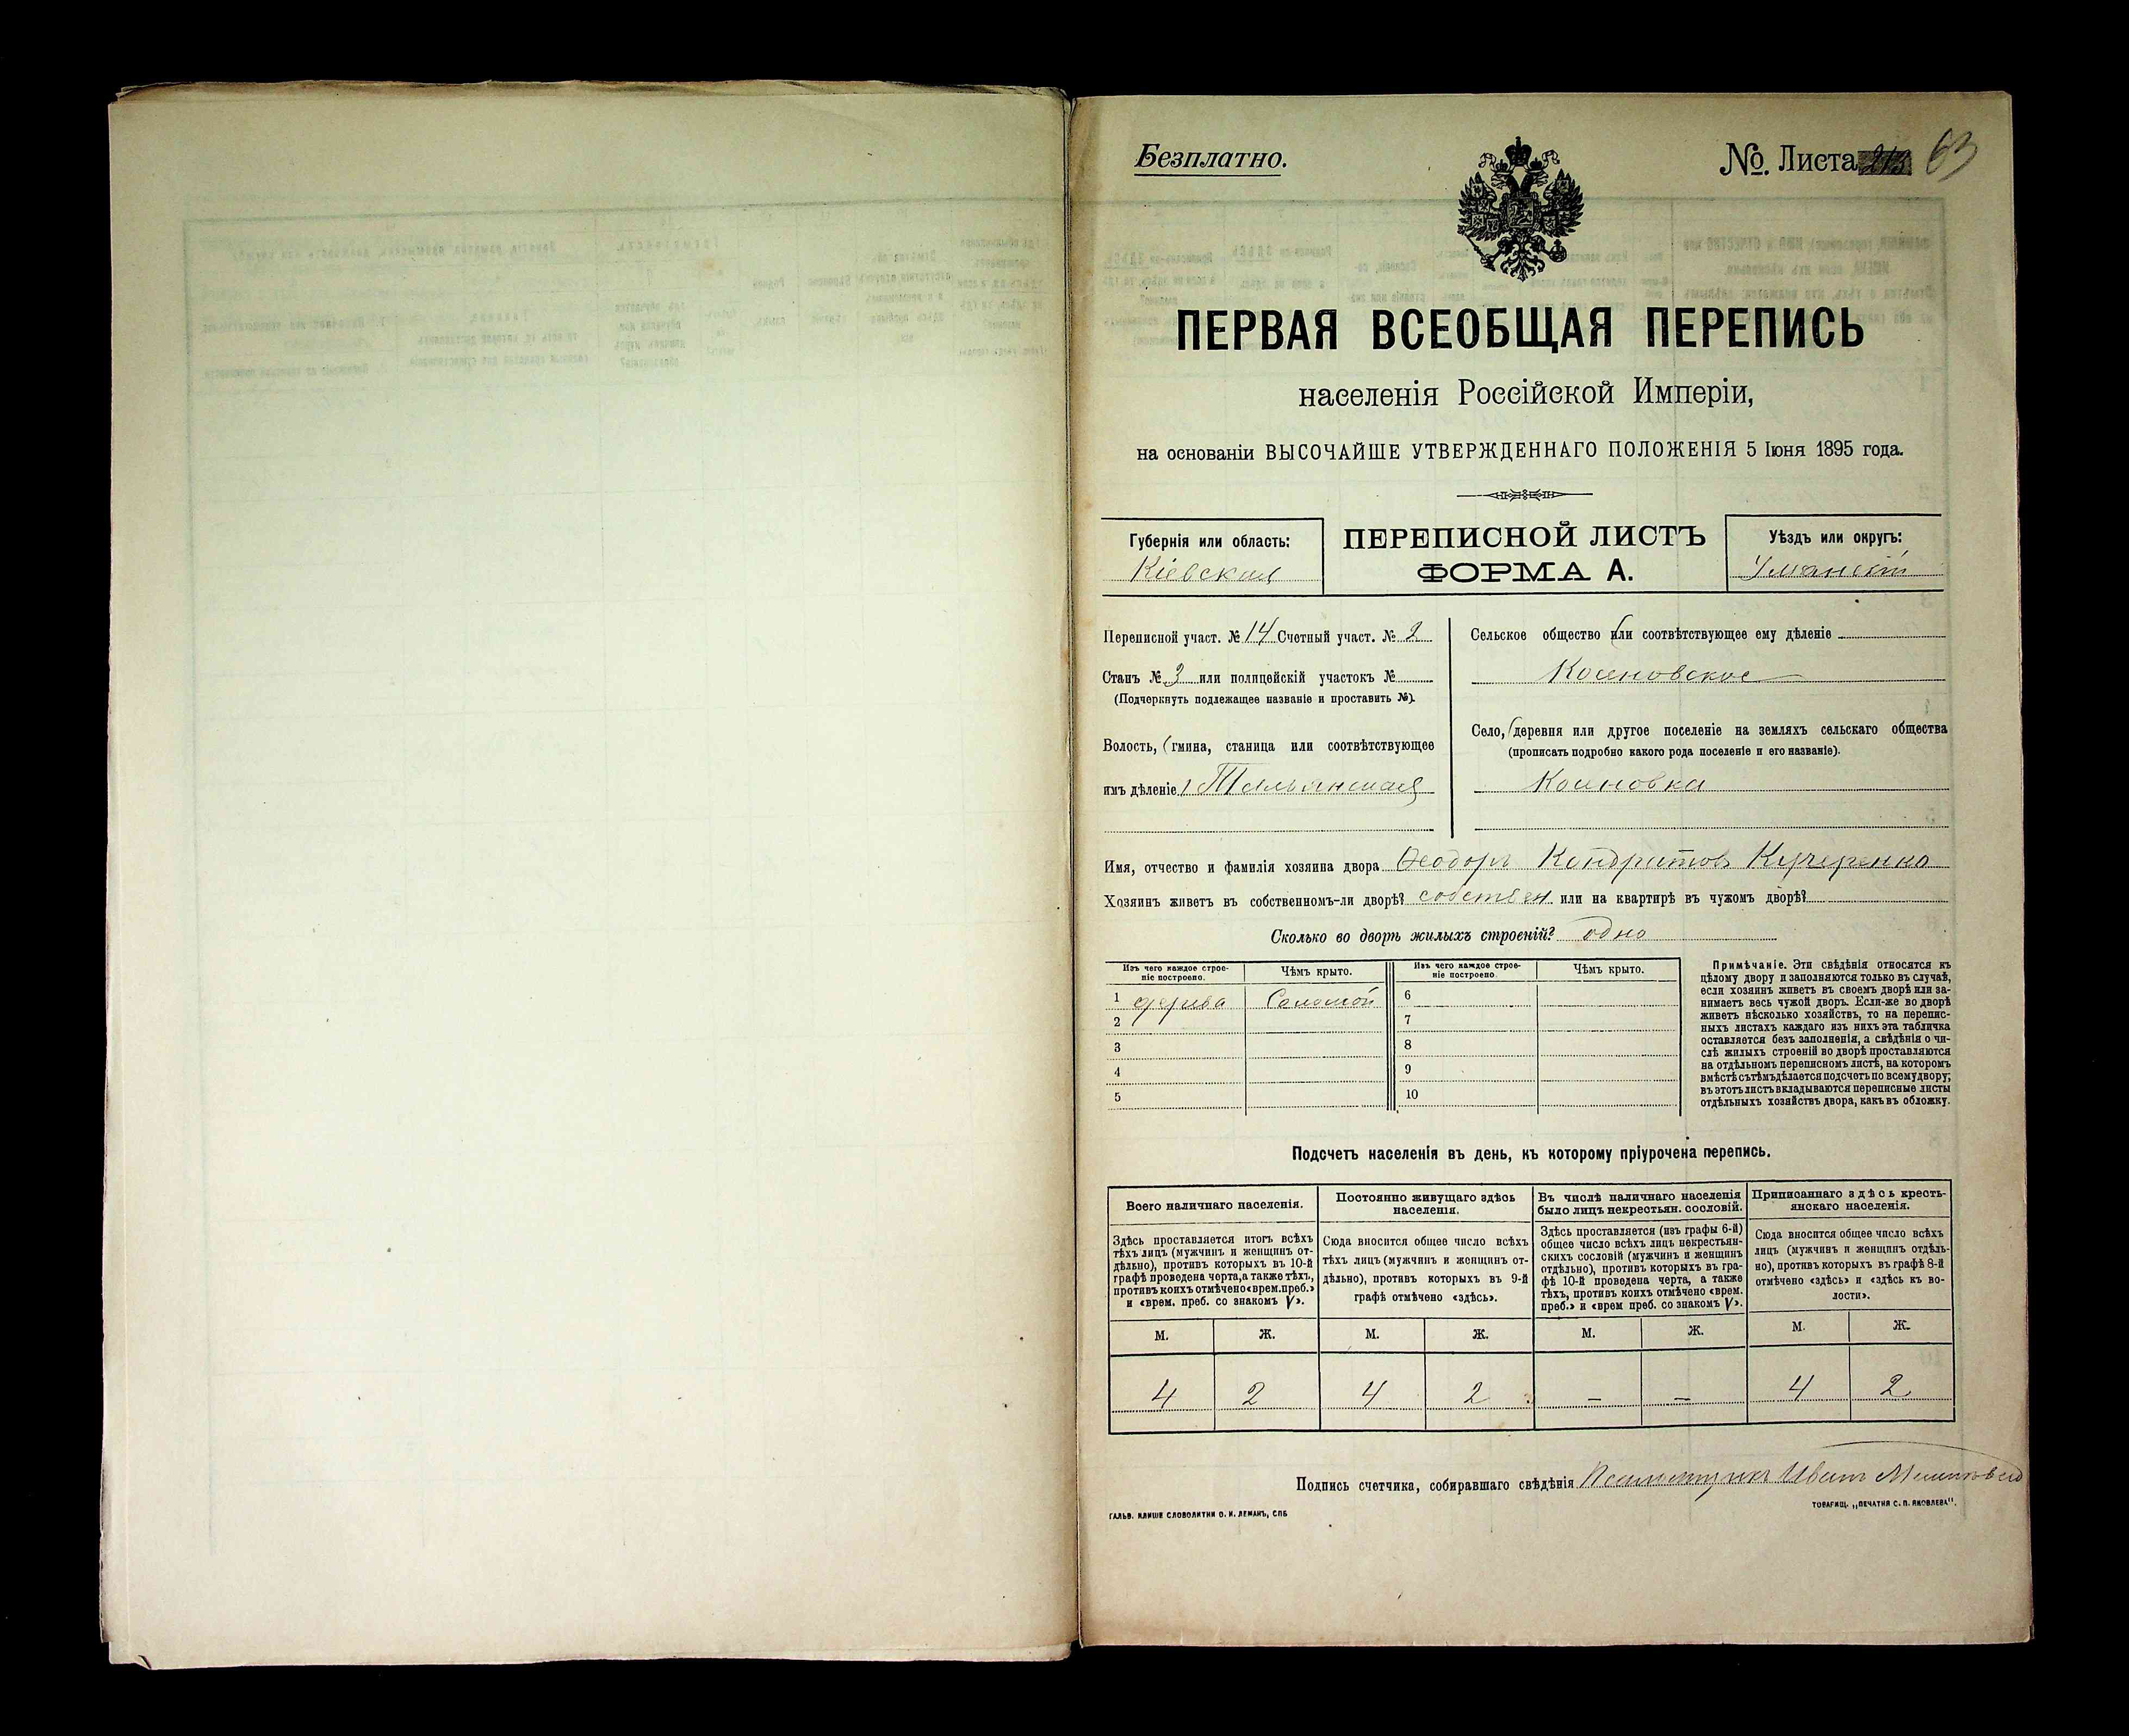 Безплатно.
№. Листа 63
ПЕРВАЯ ВСЕОБЩАЯ ПЕРЕПИСЬ
населенія Россійской Имперіи,
на основаніи ВЫСОЧАЙШЕ УТВЕРЖДЕННАГО ПОЛОЖЕНІЯ 5 Іюня 1895 года.
Губернія или область:
Кіевская
ПЕРЕПИСНОЙ ЛИСТЪ
ФОРМА А.
Уѣздъ или округъ:
Уманскій
Переписной участ. № 14 Счетный участ. № 2
Станъ № 3 или полицейскій участокъ №
(Подчеркнуть подлежащее названіе и проставить №).
Волость, (гмина, станица или соотвѣтствующее
имъ дѣленіе)
Сельское общество или соотвѣтствующее ему дѣленіе
Село, (деревня или другое поселеніе на земляхъ сельскаго общества
(прописать подробно какого рода поселеніе и его названіе).
Имя, отчество и фамилія хозяина двора Ѳеодоръ Кондратовъ Кучеренко
Хозяинъ живетъ въ собственномъ-ли дворѣ? собствен или на квартирѣ въ чужомъ дворѣ?
Сколько во дворѣ жилыхъ строеній? одно
Изъ чего каждое строе-
ніе построено.
Чѣмъ крыто.
Изъ чего каждое строе-
ніе построено
Чѣмъ крыто.
1 дерева Соломой
2
3
4
5
6
7
8
9
10
Примѣчаніе. Эти свѣдѣнія относятся къ
цѣлому двору и заполняются только въ случаѣ,
если хозяинъ живетъ въ своемъ дворѣ или за-
нимаетъ весь чужой дворъ. Если-же во дворѣ
живетъ нѣсколько хозяйствъ, то на перепис-
ныхъ листахъ каждаго изъ нихъ эта табличка
оставляется безъ заполненія, а свѣдѣнія о чи-
слѣ жилыхъ строеній во дворѣ проставляются
на отдѣльномъ переписномъ листѣ, на которомъ
вмѣстѣ съ тѣмъ дѣлается подсчетъ по всему двору;
въ этотъ листъ вкладываются переписные листы
отдѣльныхъ хозяйствъ двора, какъ въ обложку.
Подсчетъ населенія въ день, къ которому пріурочена перепись.
Всего наличнаго населенія.
Здѣсь проставляется итогъ всѣхъ
тѣхъ лицъ (мужчинъ и женщинъ от-
дѣльно), противъ которыхъ въ 10-й
графѣ проведена черта, а также тѣхъ,
противъ коихъ отмѣчено «врем. преб.»
и «врем. преб. со знакомъ V».
Постоянно живущаго здѣсь
населенія.
Сюда вносится общее число всѣхъ
тѣхъ лицъ (мужчинъ и женщинъ от-
дѣльно), противъ которыхъ въ 9-й
графѣ отмѣчено «здѣсь».
Въ числѣ наличнаго населенія
было лицъ некрестьян. сословій.
Здѣсь проставляется (изъ графы 6-й)
общее число всѣхъ лицъ некрестьян-
скихъ сословій (мужчинъ и женщинъ
отдѣльно), противъ которыхъ въ гра-
фѣ 10-й проведена черта, а также
тѣхъ, противъ коихъ отмѣчено «врем.
преб.» и «врем преб. со знакомъ V».
Приписаннаго здѣсь кресть-
янскаго населенія.
Сюда вносится общее число всѣхъ
лицъ (мужчинъ и женщинъ отдѣль-
но), противъ которыхъ въ графѣ 8-й
отмѣчено «здѣсь» и «здѣсь къ во-
лости».
М. Ж. М. Ж. М. Ж. М. Ж.
4 2 4 2 – – 4 2
Подпись счетчика, собиравшаго свѣдѣнія Псаломщикъ Иванъ
ГАЛЬВ. КЛИШЕ СЛОВОЛИТНИ О. И. ЛЕМАНЪ, СПБ
ТОВАРИЩ. „ПЕЧАТНЯ С. П. ЯКОВЛЕВА".